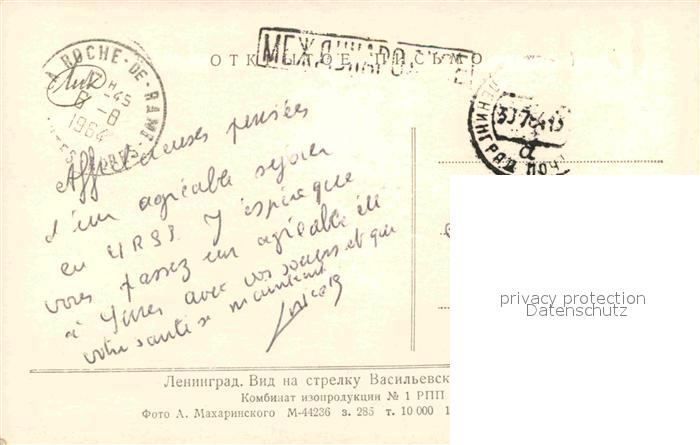 ОТКРЫТОЕ ПИСЬМО
МЕЖДУНАРО
A ROCHE-DE-RAME
-45
8-8
1964
ЛЕНИНГРАД ПОЧ
Affectueuses pensées
d'un agréable séjour
en URSS. J'espère que
vous passez un agréable été
à avec vos soeurs et que
votre santé se maintient
privacy protection
Datenschutz
Ленинград. Вид на стрелку Васильевск
Комбинат изопродукции № 1 РПП
Фото А. Махаринского М-44236 з. 285 т. 10 000 1